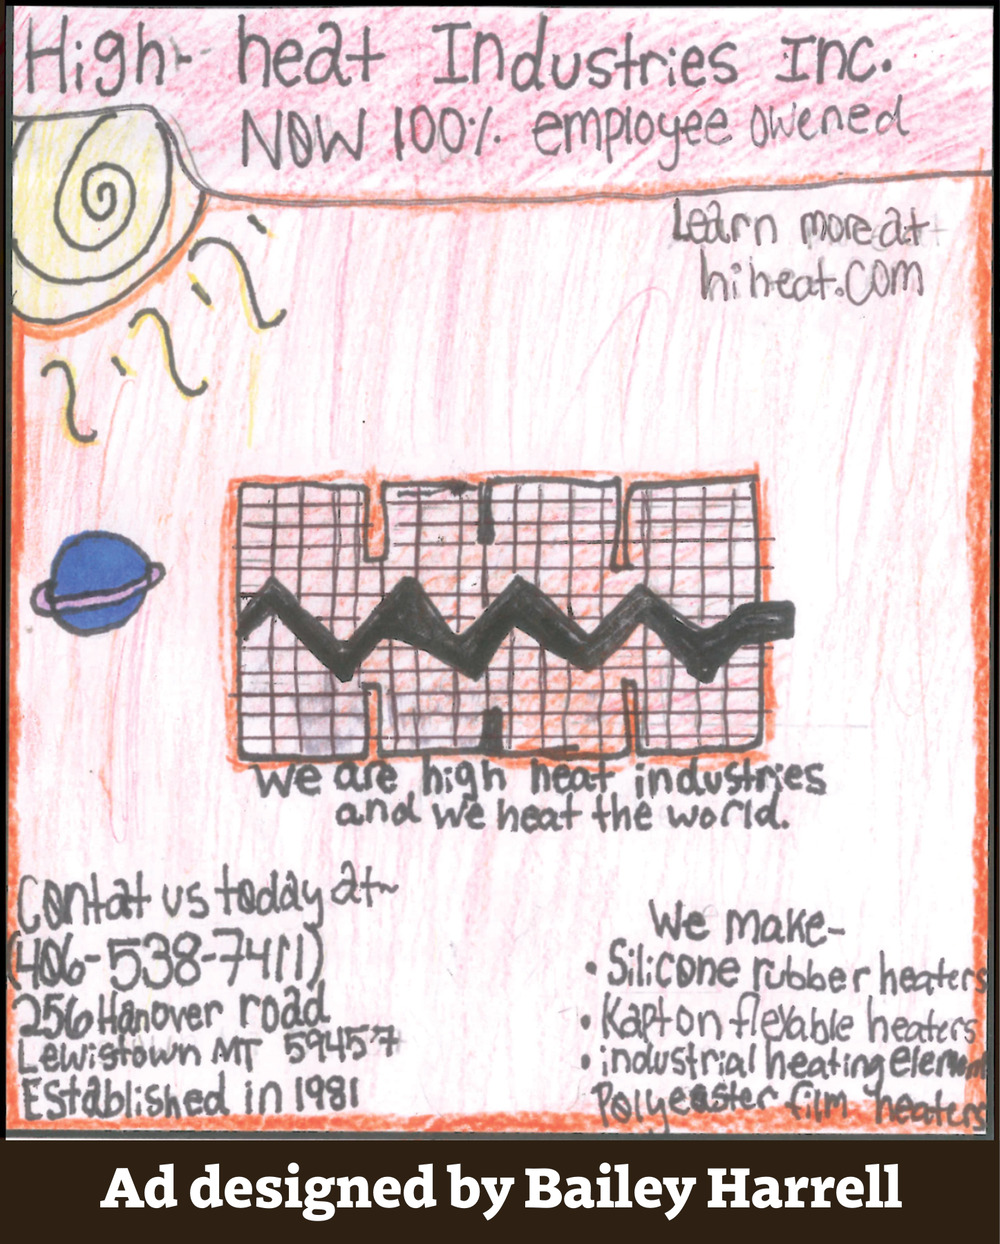 High- heat Industries Inc.
NOW 100% employee owened
Learn more at
hiheat.com
We are high heat industries
and we heat the world.
Contat us today at~
(406-538-7411)
256 Hanover road
Lewistown MT 59457
Established in 1981
We make-
• Silicone rubber heaters
• Kapton flexable heaters
• industrial heating element
Polyeaster film heaters
Ad designed by Bailey Harrell